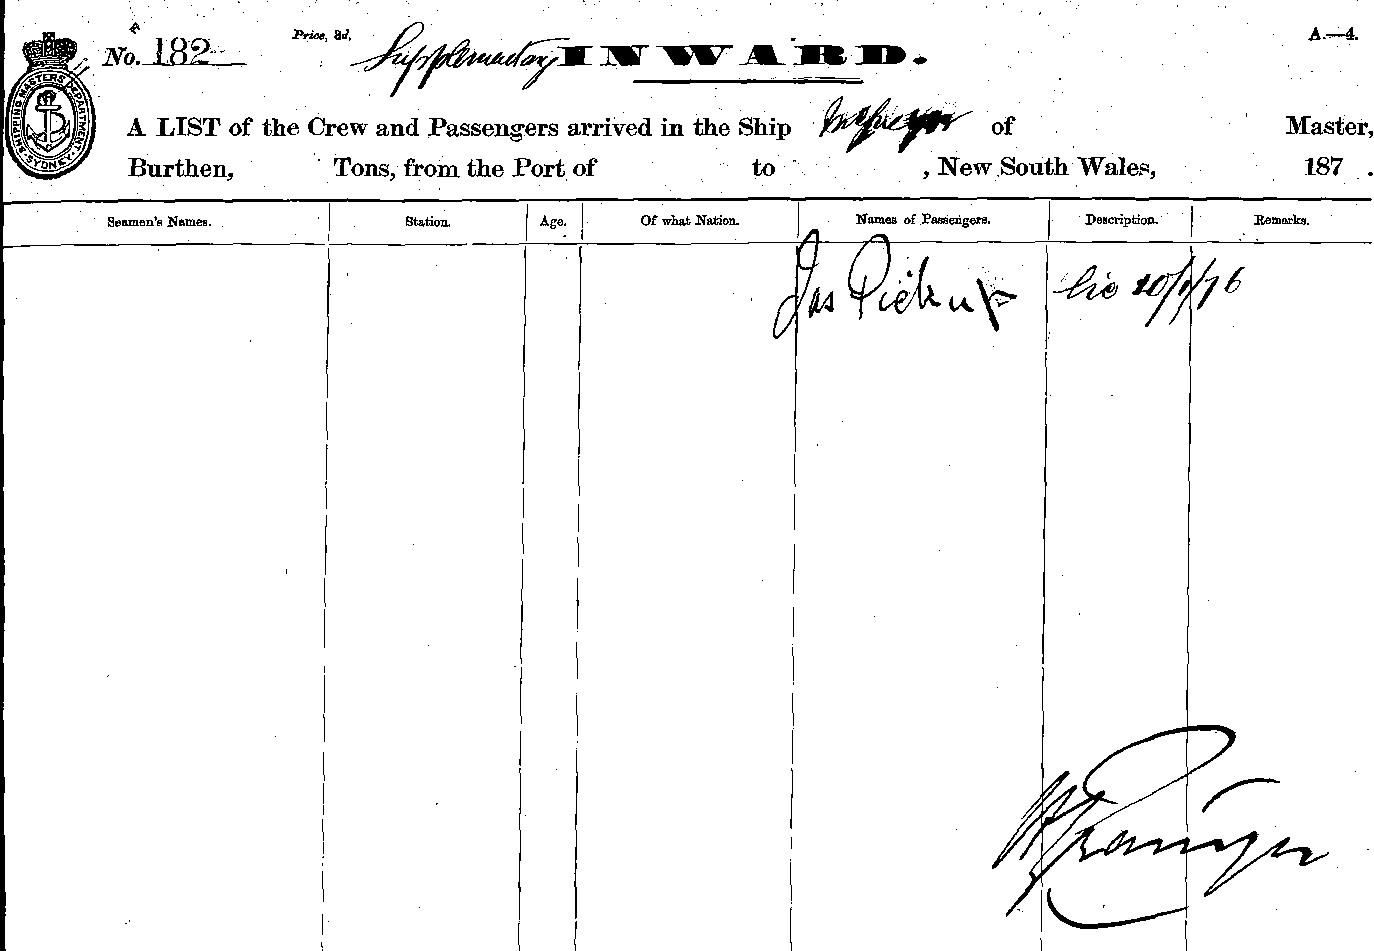 No. 182 Price, 3d, Supplementary INWARD. A.—4.
SHIPPING MASTERS DEPARTMENT SYDNEY
A LIST of the Crew and Passengers arrived in the Ship McGregor of Master,
Burthen, Tons, from the Port of to , New South Wales, 187 .
Seamen's Names. Station. Age. Of what Nation. Names of Passengers. Description. Remarks.
Jas Pickup lic 20/1/76